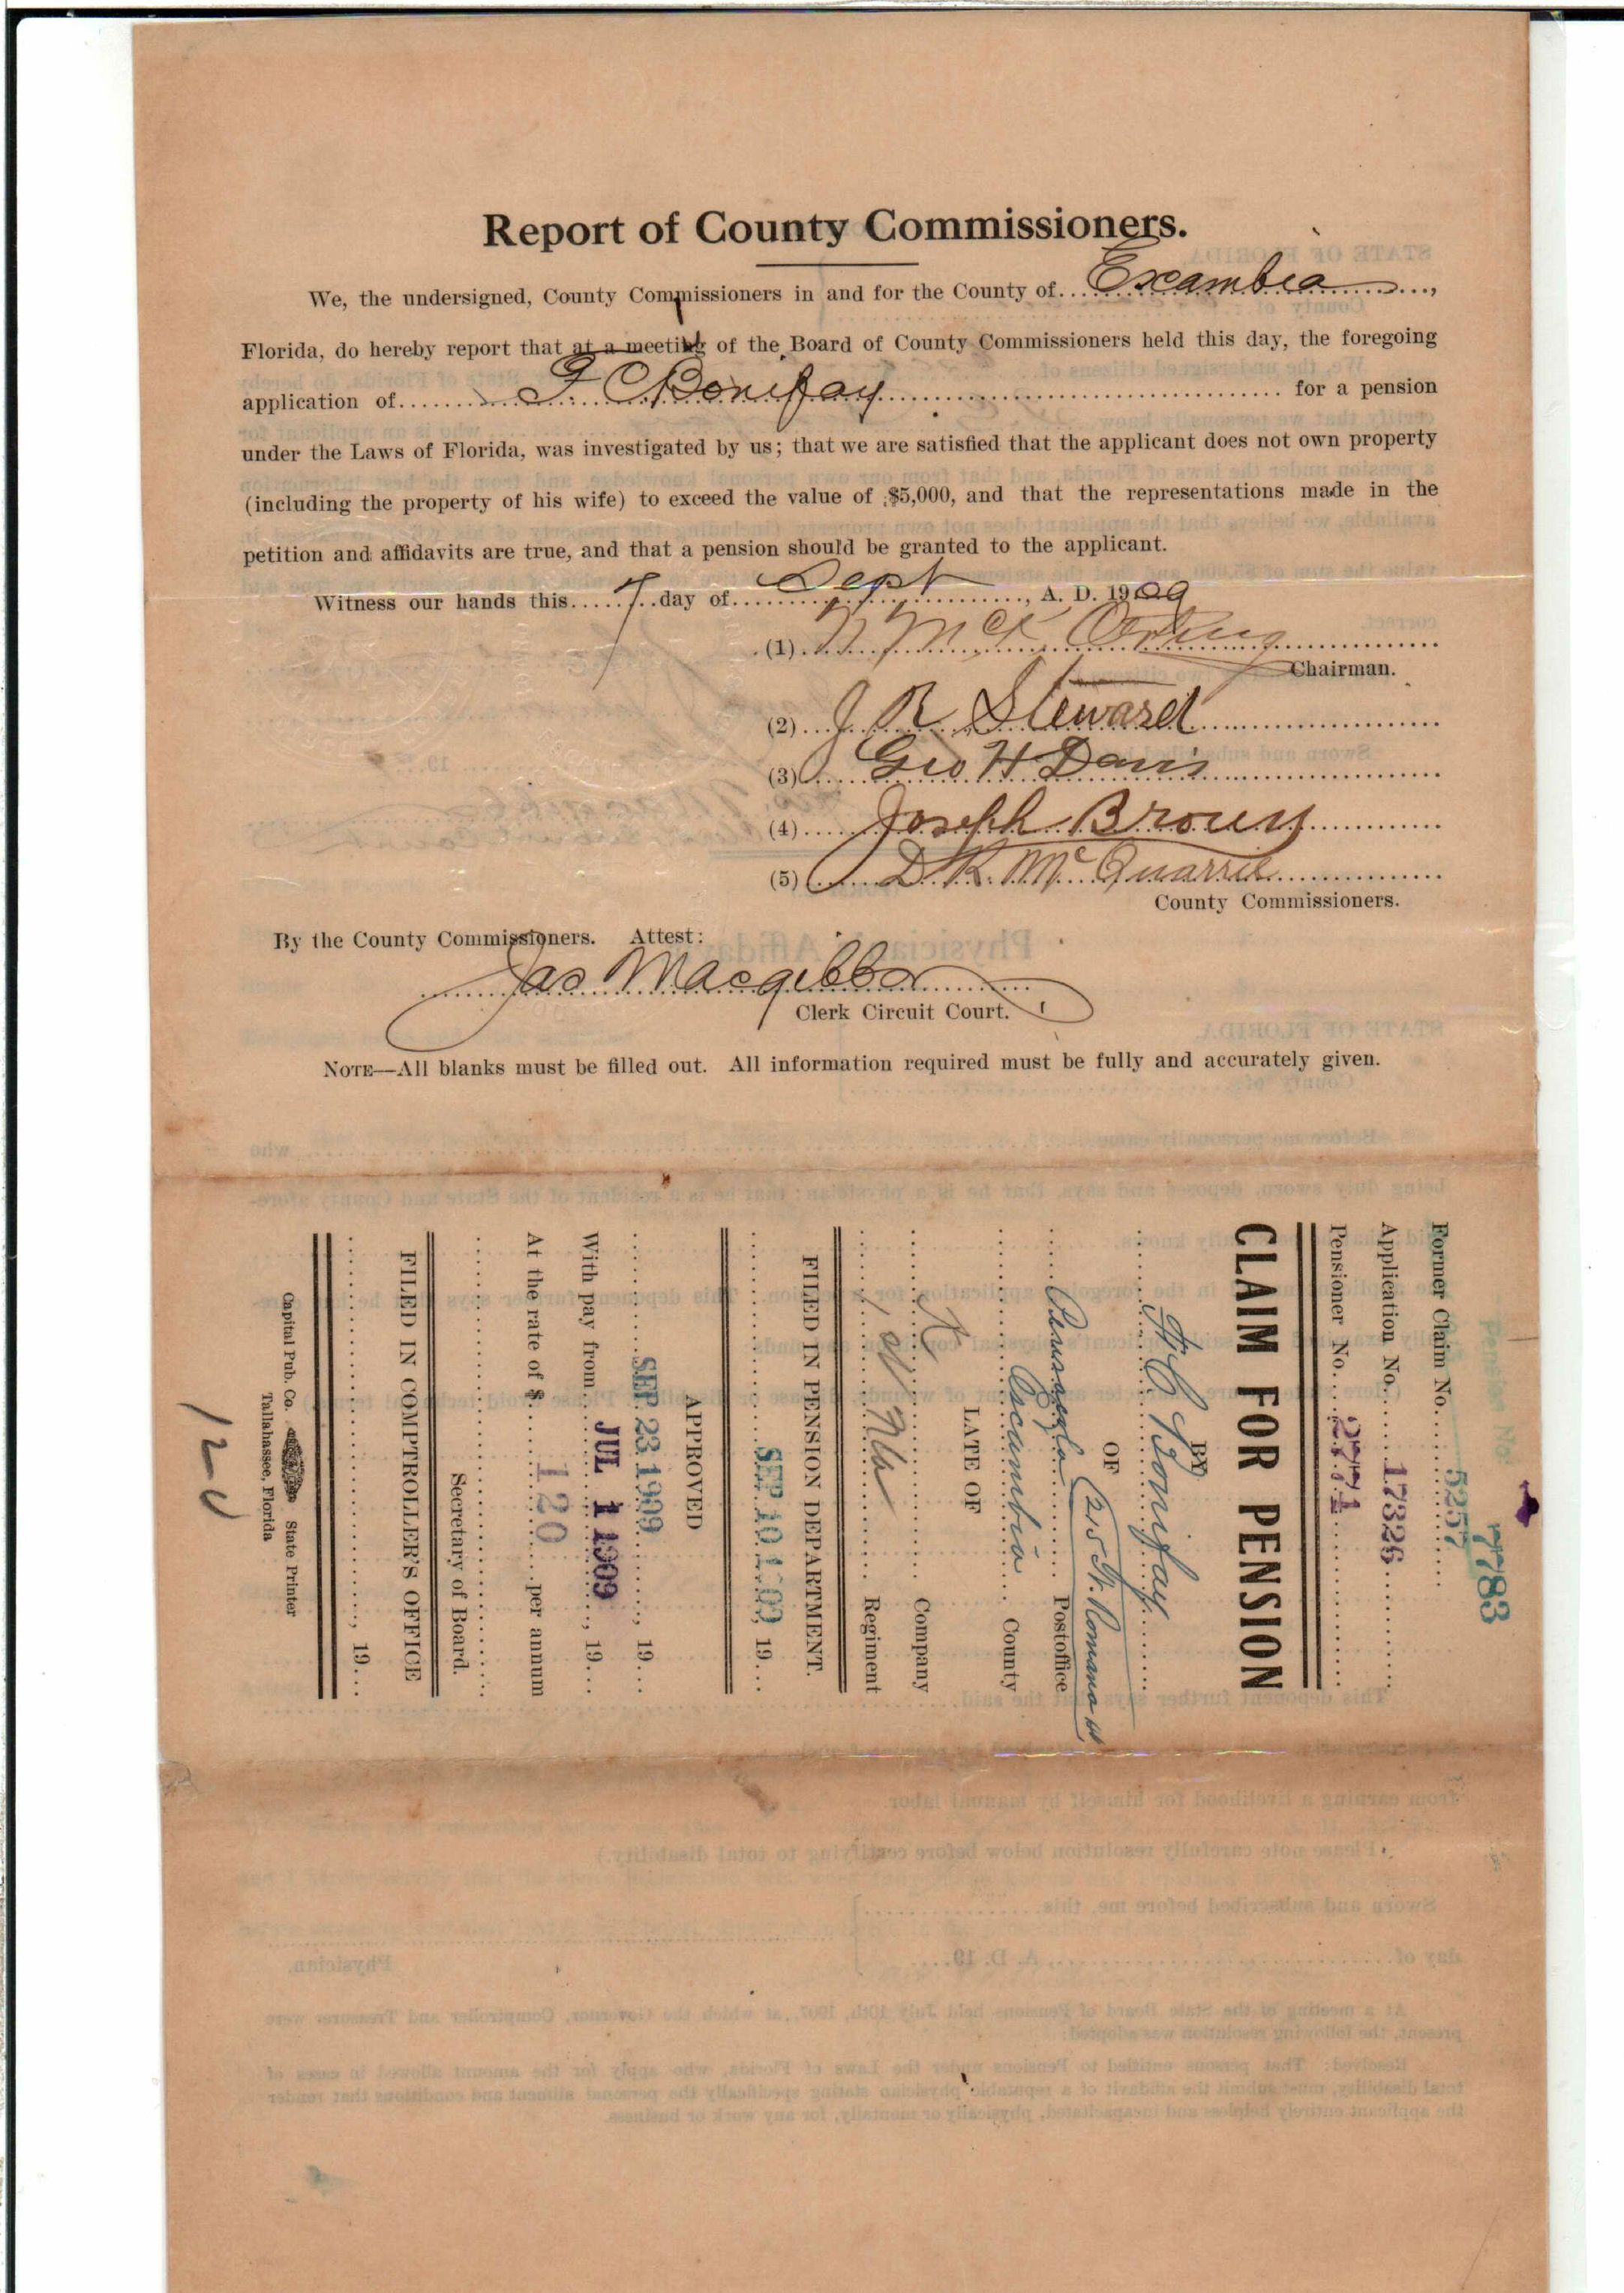 Report of County Commissioners.
We, the undersigned, County Commissioners in and for the County of Escambia,
Florida, do hereby report that at a meeting of the Board of County Commissioners held this day, the foregoing
application of F C Bonifay for a pension
under the Laws of Florida, was investigated by us; that we are satisfied that the applicant does not own property
(including the property of his wife) to exceed the value of $5,000, and that the representations made in the
petition and affidavits are true, and that a pension should be granted to the applicant.
Witness our hands this 7 day of Sept, A. D. 1909
(1)
Chairman.
(2) J R Steward
(3) Geo H Davis
(4) Joseph Brown
(5) D K McQuarrie
County Commissioners.
By the County Commissioners. Attest:
Jas Macgibbon
Clerk Circuit Court.
NOTE—All blanks must be filled out. All information required must be fully and accurately given.
Pension No. 7783
Former Claim No. 5257
Application No. 17326
Pensioner No. 2771
CLAIM FOR PENSION
BY
F C Bonifay
OF
(215 W. Romana st
Pensacola Postoffice
Escambia County
LATE OF
K Company
1 of Ala Regiment
FILED IN PENSION DEPARTMENT.
SEP 10 1909, 19
APPROVED
SEP 23 1909, 19
With pay from JUL 1 1909, 19
At the rate of $ 120 per annum
Secretary of Board.
FILED IN COMPTROLLER'S OFFICE
, 19
Capital Pub. Co. State Printer
Tallahassee, Florida
120